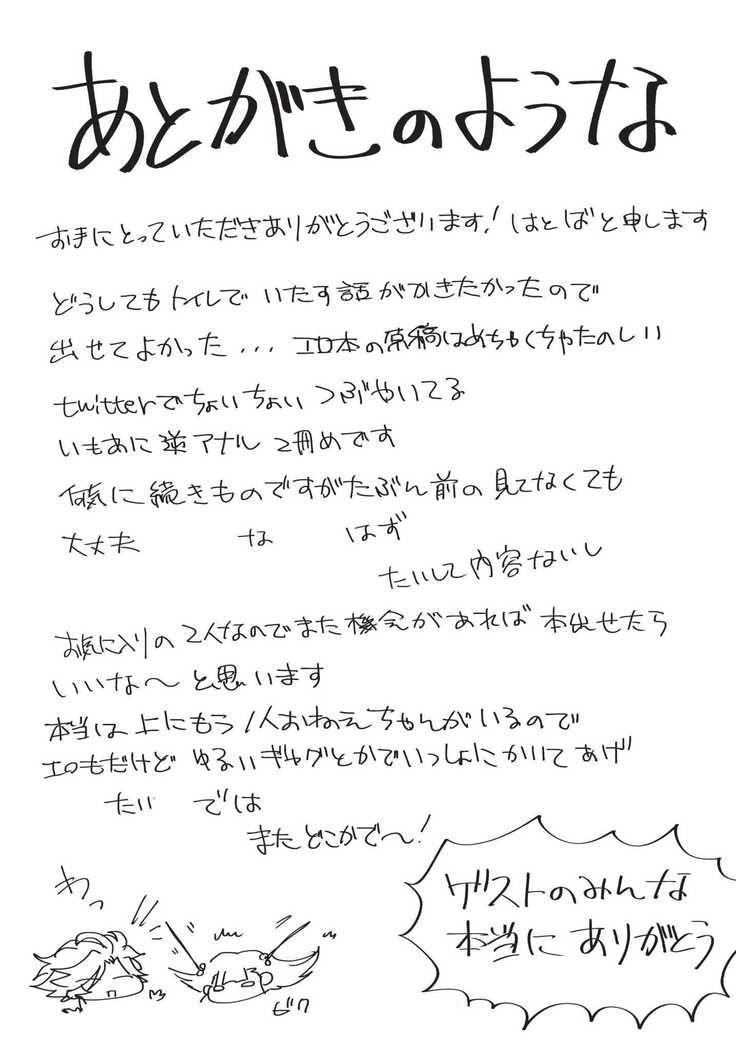 あとがきのような
お手にとっていただきありがとうございます! はとばと申します
どうしてもトイレで いたす話がかきたかったので
出せてよかった... エロ本の原稿はめちゃくちゃたのしい
twitterでちょいちょいつぶやいてる
いもあに逆アナル 2冊めです
何気に続きものですがたぶん前の見てなくても
大丈夫 な はず
たいして内容ないし
お気に入りの2人なのでまた機会があれば 本出せたら
いいな〜 と思います
本当は上にもう1人おねえちゃんがいるので
エロもだけど ゆるいギャグとかでいっしょにかいてあげ
たい では
またどこかで〜!
ゲストのみんな
本当にありがとう
わっ
ビク